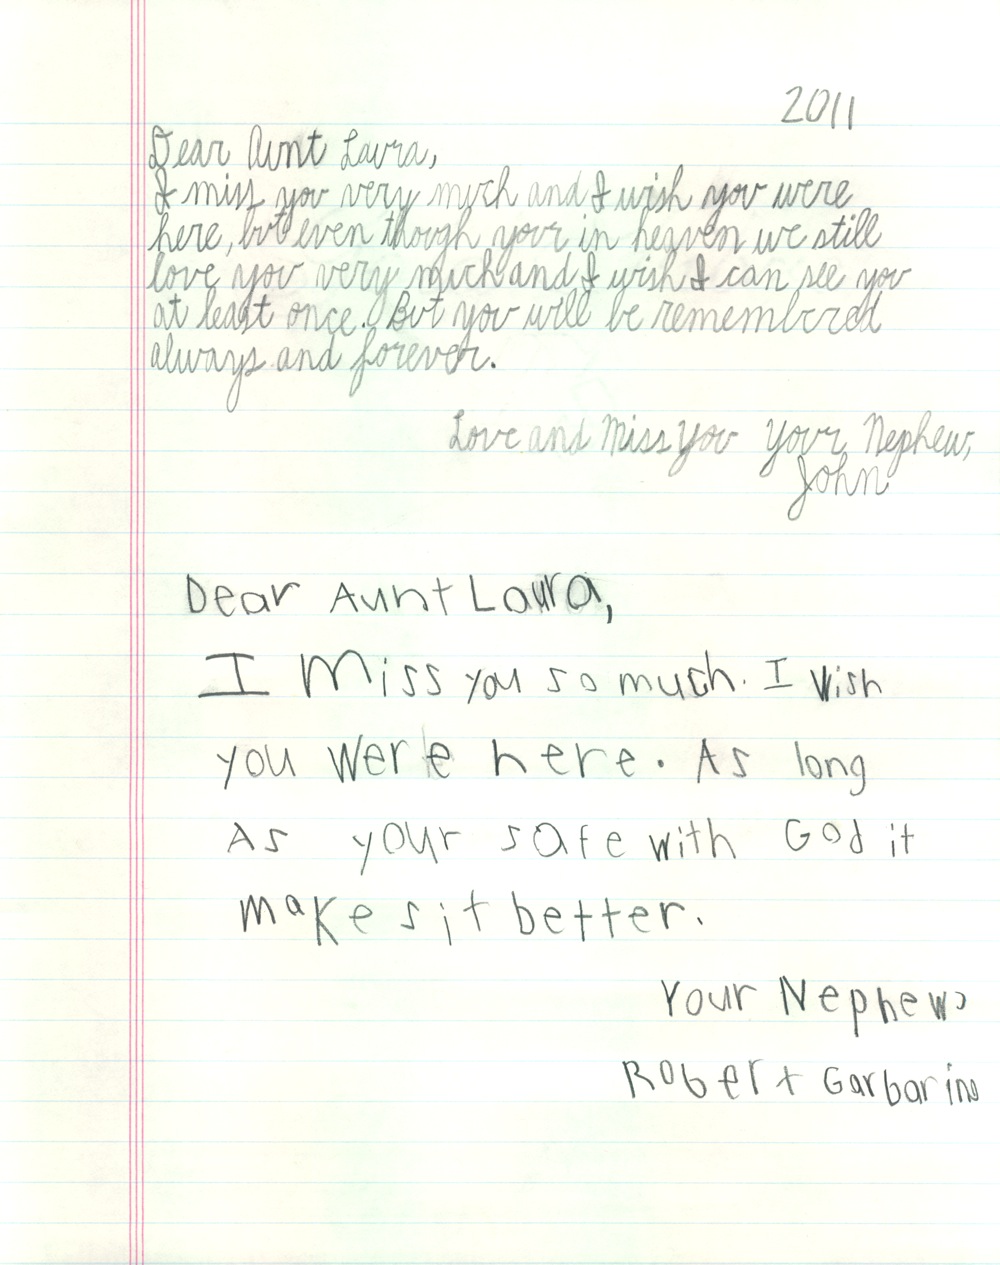 2011
Dear Aunt Laura,
I miss you very much and I wish you were
here, but even though your in heaven we still
love you very much and I wish I can see you
at least once. But you will be remembered
always and forever.
Love and Miss You Your Nephew,
John
Dear Aunt Laura,
I Miss you so much. I Wish
you Were here. As long
As your safe with God it
makes it better.
Your Nephew,
Robert Garbarino